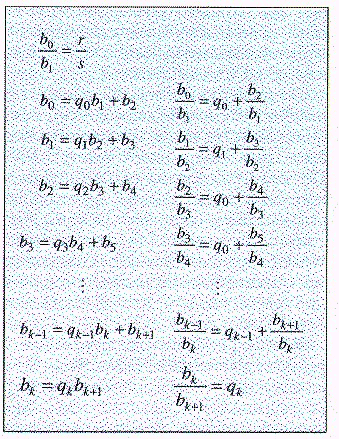 b₀/b₁ = r/s
b₀ = q₀b₁ + b₂    b₀/b₁ = q₀ + b₂/b₁
b₁ = q₁b₂ + b₃    b₁/b₂ = q₁ + b₃/b₂
b₂ = q₂b₃ + b₄    b₂/b₃ = q₀ + b₄/b₃
b₃ = q₃b₄ + b₅    b₃/b₄ = q₀ + b₅/b₄
⋮    ⋮
bₖ₋₁ = qₖ₋₁bₖ + bₖ₊₁    bₖ₋₁/bₖ = qₖ₋₁ + bₖ₊₁/bₖ
bₖ = qₖbₖ₊₁    bₖ/bₖ₊₁ = qₖ